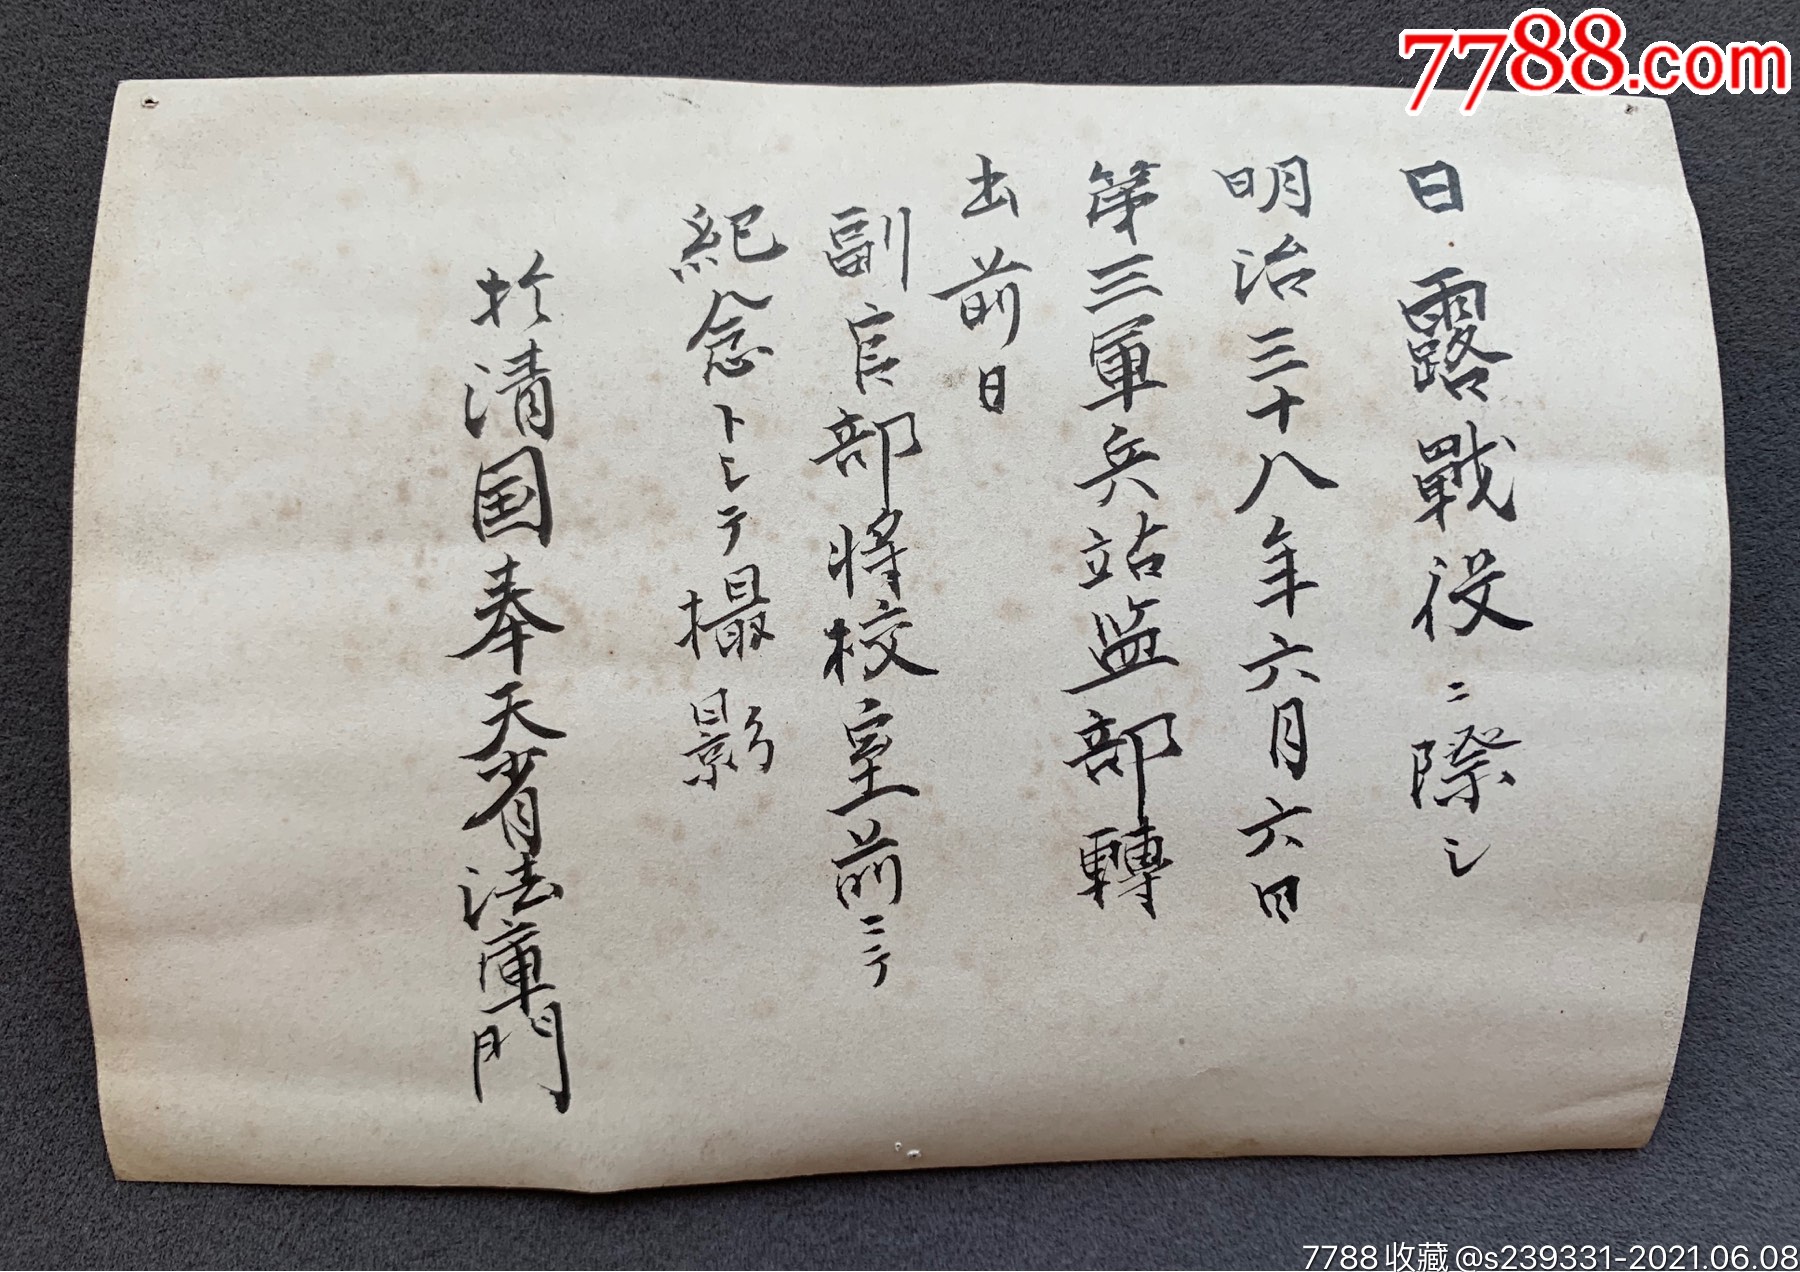 7788.com
日露戰役ニ際シ
明治三十八年六月六日
第三軍兵站監部轉
出前日
副官部将校室前ニテ
紀念トシテ撮影
於清国奉天省法庫門
7788收藏@s239331-2021.06.08